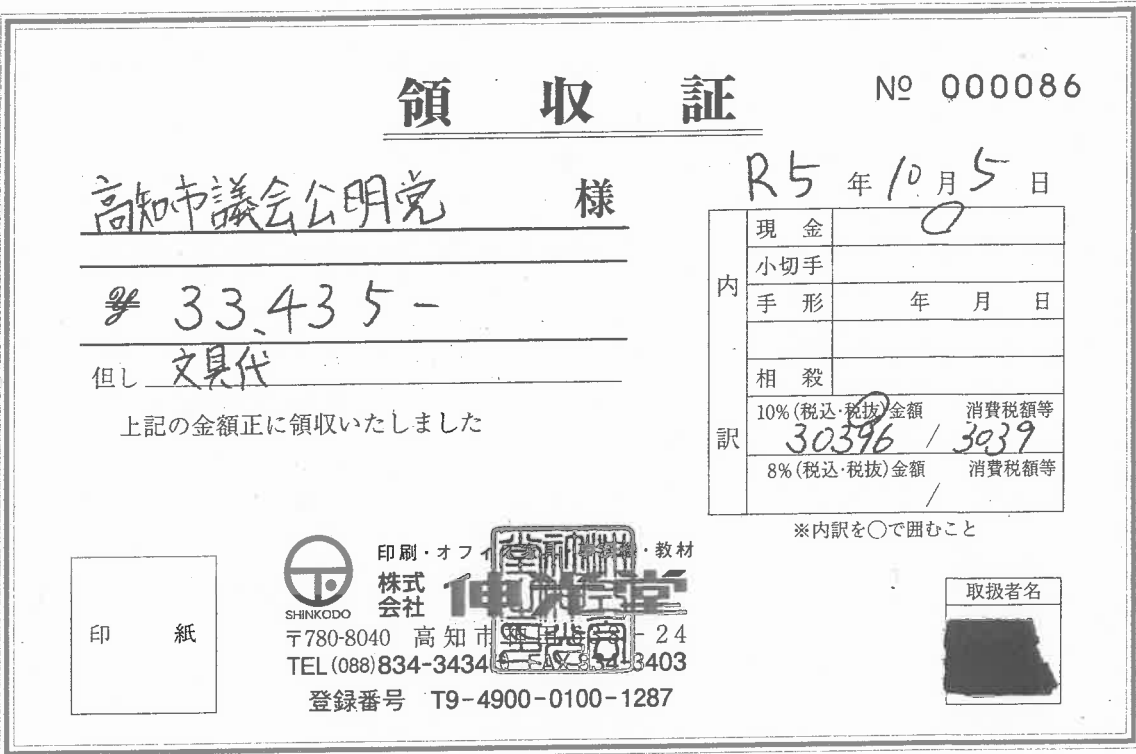 領 収 証
№ 000086
R5 年 10 月 5 日
高知市議会公明党 様
¥ 33,435-
但し 文具代
上記の金額正に領収いたしました
内訳
現 金 ○
小切手
手 形 年 月 日
相 殺
10%(税込・税抜)金額 消費税額等
30396 / 3039
8%(税込・税抜)金額 消費税額等
/
※内訳を○で囲むこと
印 紙
SHINKODO
印刷・オフィ 教材
株式会社 伸光堂
〒780-8040 高知市 -24
TEL(088)834-3434 FAX 834-3403
登録番号 T9-4900-0100-1287
取扱者名